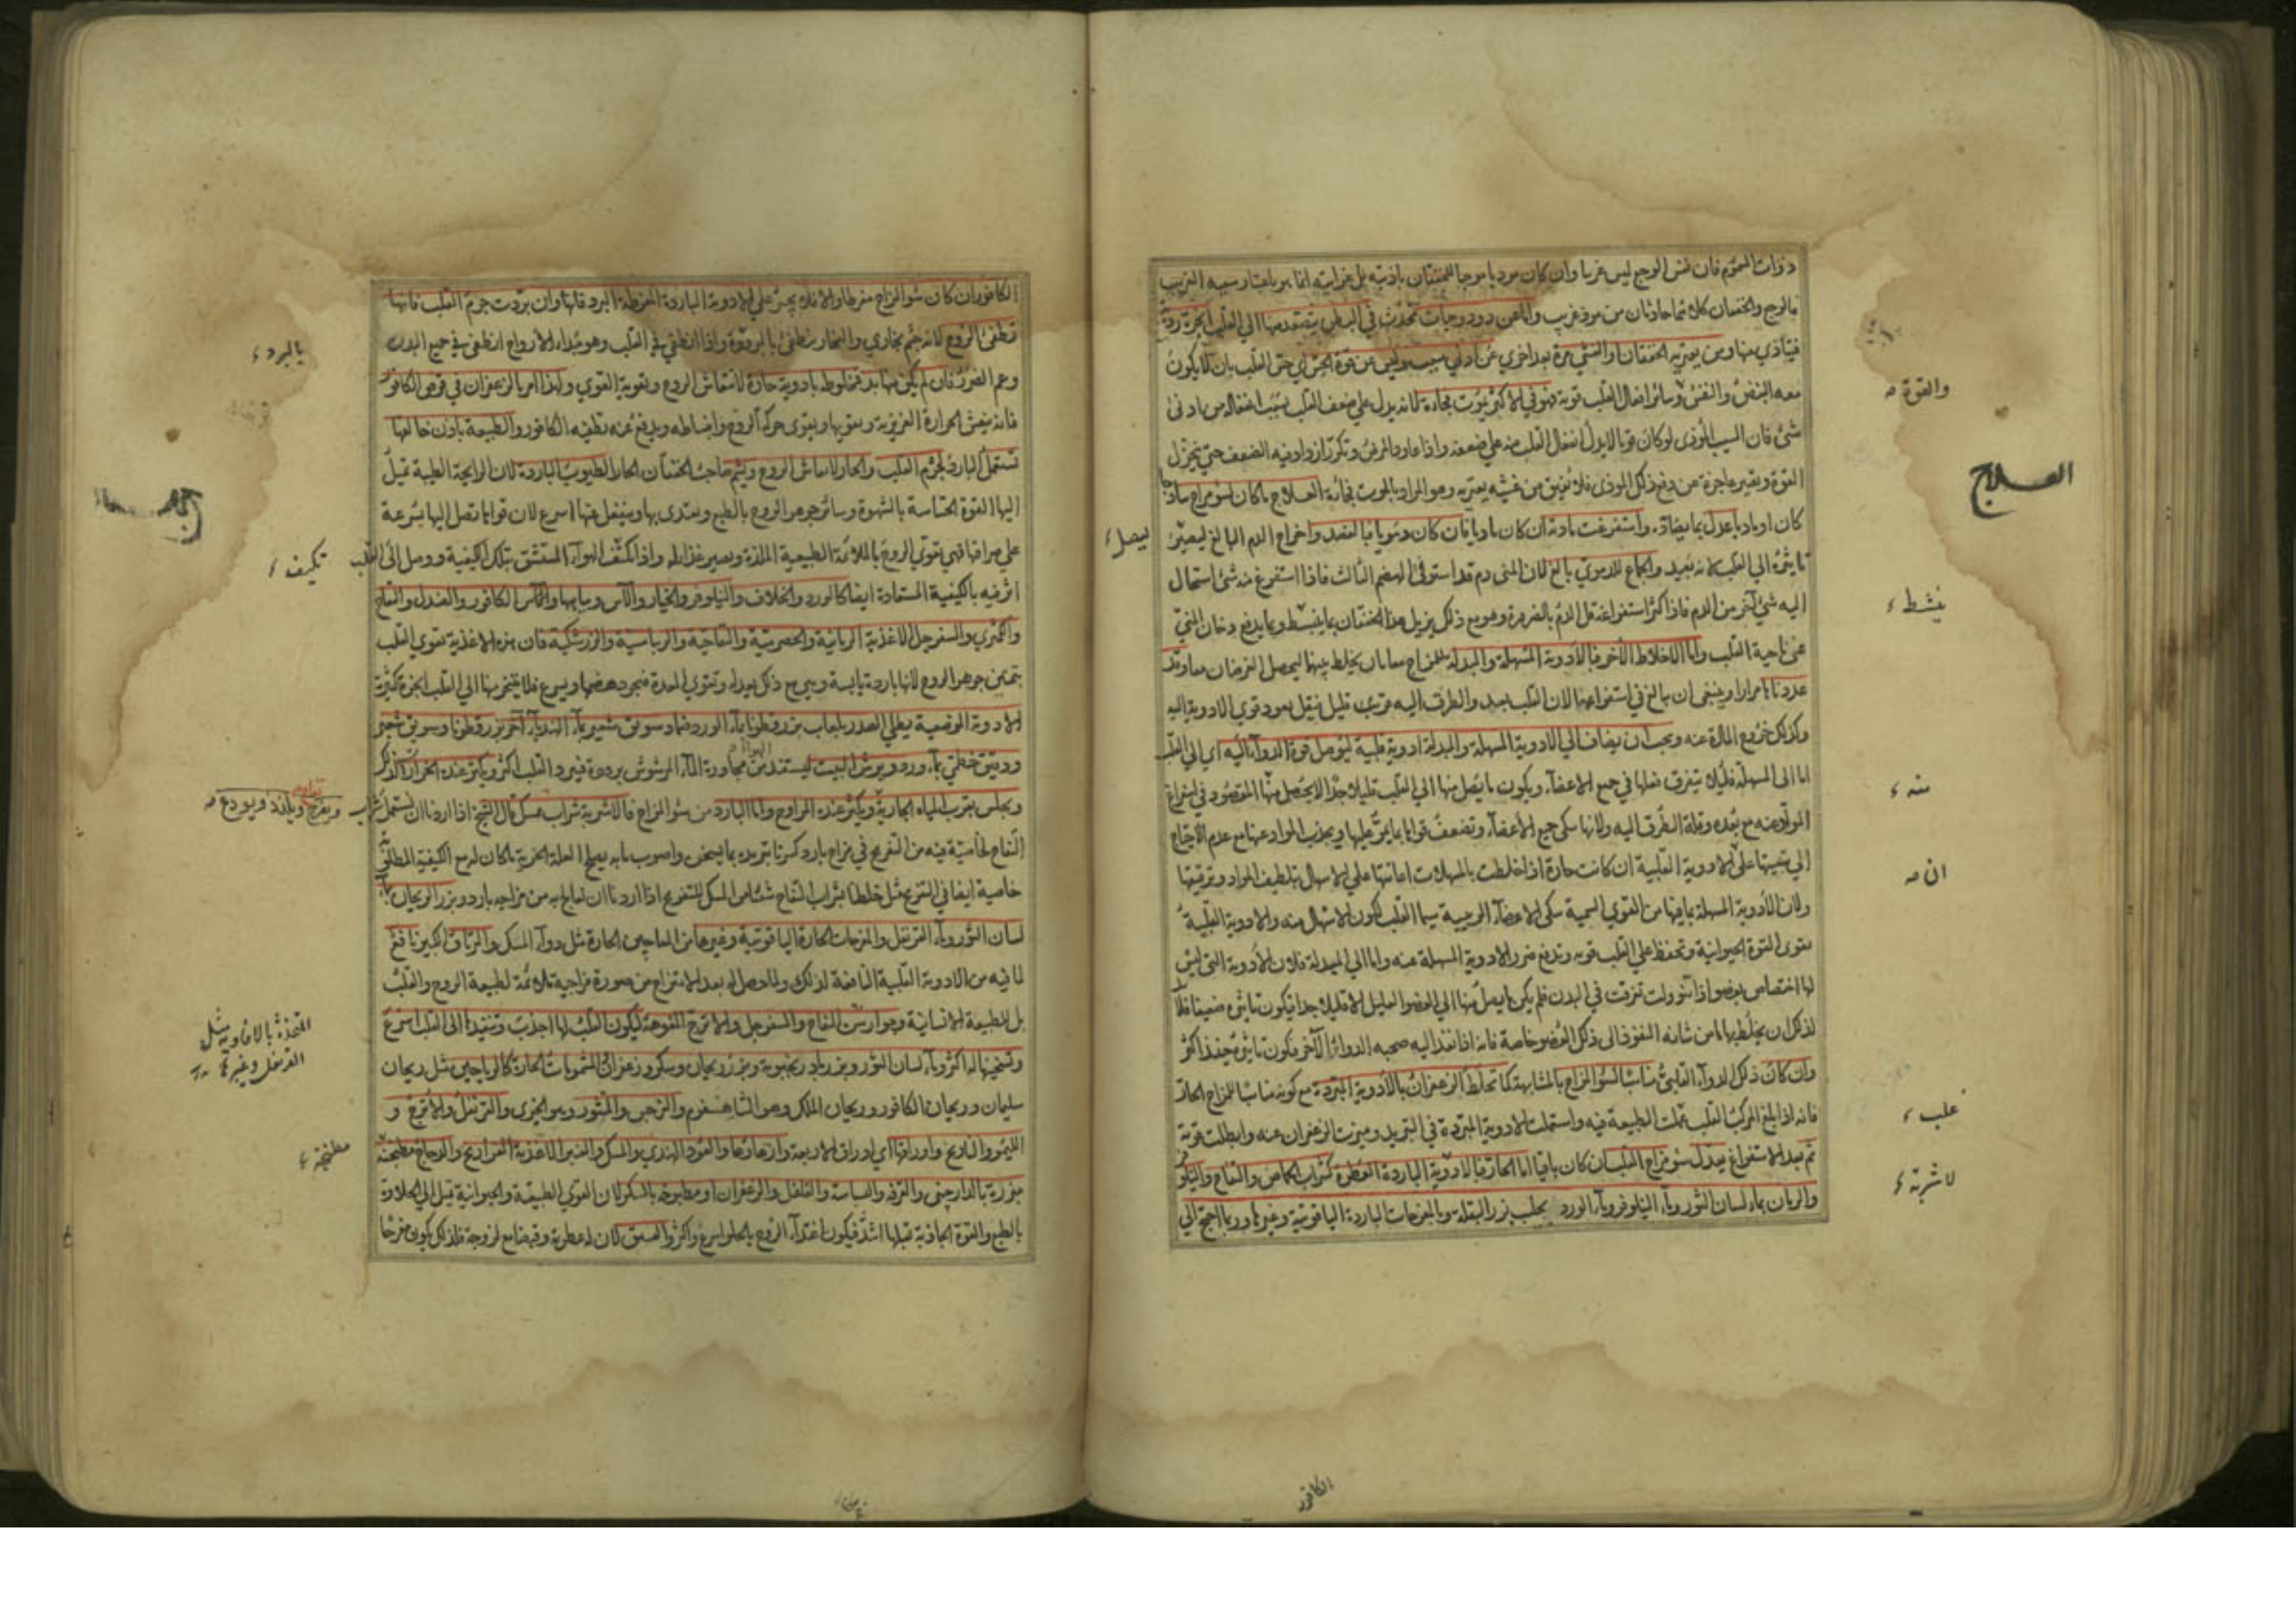 ذوات السموم فان نفس الوجع ليس غريبا وان كان موذيا موجبا للخفقان باذيته بل غرابته انما هو باعتبار سببه الغريب
فالوجع والخفقان كلاهما حادثان من موذ غريب واما عن دود وحيات تحدث في البطن يتصعد منها الى القلب ابخرة ردية
فيتاذى بها ومن يعتريه الخفقان او الغشي مرة بعد اخرى عن ادنى سبب وليس عن قوة الحس اي حس القلب بان لا يكون
معه النبض والنفس وسائر افعال القلب قوية فهو في الاكثر يموت فجاءة لانه يدل على ضعف القلب بسبب انفعاله من ادنى
شئ فان السبب الموذي لو كان قويا لا يدل انفعال القلب منه على ضعفه واذا عاود المرض وتكرر ازداد فيه الضعف حتى يخذل
القوة وتصير عاجزة عن دفع ذلك الموذي فلا يفيق من غشيه يعتريه وهو المراد بالموت فجاءة العلاج ما كان لسوء مزاج ساذجا
كان او ماديا عدل بما يضاده واستفرغت مادته ان كان ماديا فان كان دمويا فبالفصد واخراج الدم البالغ ليصير
تاثيره الى القلب لانه بعيد والجماع للدموي بالغ لان المني دم قد استوفى الهضم الثالث فاذا استفرغ منه شئ استحال
اليه شئ آخر من الدم فاذا كثر استفراغه قل الدم بالضرورة وهو مع ذلك يزيل هذا الخفقان بما ينبسط وبما يدفع دخان المني
عن ناحية القلب واما الاخلاط الأخر فبالأدوية المسهلة والمبدلة للمزاج معا بان يخلط بينهما ليحصل الغرضان معا وقد
عددناها مرارا وينبغي ان يبالغ في استفراغها لان القلب بعيد والطرق اليه
وكذلك خروج المادة عنه ويجب ان يضاف الى الادوية المسهلة والمبدلة ادوية قلبية ليوصل قوة الدواء اليه اي الى القلب
اما الى المسهلة فلئلا يتفرق فعلها في جميع الاعضاء ويكون ما يصل منها الى القلب قليلا جدا لا يحصل منها المقصود في استفراغ
المواد عنه مع بعده وقلة الطرق اليه ولانها تنكي جميع الاعضاء وتضعف قواها بما يمر عليها ويجذب المواد عنها مع عدم الاحتياج
الى تنقيتها على ان الادوية القلبية ان كانت حارة اذا خلطت بالمسهلات اعانتها على الاسهال بتلطيف المواد وترقيقها
ولان الأدوية المسهلة بما فيها من القوى السمية تنكي الاعضاء الرئيسة سيما القلب لكون الاسهال منه والادوية القلبية
تقوى القوة الحيوانية وتحفظ على القلب قوته وتدفع ضرر الادوية المسهلة عنه واما الى المبدلة فلان الأدوية التي ليس
لها اختصاص بعضو اذا تنوولت تفرقت في البدن فلم يكن ما يصل منها الى العضو العليل الا قليلا جدا فيكون تاثيره ضعيفا فلا بد
لذلك ان يخلط بها ما من شانه النفوذ الى ذلك العضو خاصة فانه اذا نفذ اليه صحبه الدواء الآخر فيكون تاثيره حينئذ اكثر
وان كان ذلك الدواء القلبي مناسبا لسوء المزاج بالمشابهة كما تخلط الزعفران بالأدوية المبردة مع كونه مناسبا للمزاج الحار
فانه اذا بلغ المركب القلب عملت الطبيعة فيه واستعملت الادوية المبردة في التبريد وميزت الزعفران عنه وابطلت قوته
ثم بعد الاستفراغ يبدل سوء مزاج القلب ان كان باقيا اما الحار فبالادوية الباردة العطرة كشراب الحماض والتفاح والنيلوفر
والرمان بماء لسان الثور وماء النيلوفر وماء الورد بحليب بزر البقلة والمفرحات الباردة الياقوتية وغيرها وربما احتج الى
والقوة
العلاج
ليصل
ينشط
منه
ان
علب
لاشربة
الكافور
الكافور ان كان سوء المزاج مفرطا والا فلا يجسر على الادوية الباردة المفرطة البرد فانها وان بردت جرم القلب فانها
تطفئ الروح لانه جسم بخاري والبخار ينطفئ بالبرودة واذا انطفئ في القلب وهو مبداء الأرواح انطفئ في جميع البدن
وعم الضرر فان لم يكن منها بد فمخلوطه بادوية حارة لانتعاش الروح وتقوية القوى ولهذا امر بالزعفران في قرص الكافور
فانه ينعش الحرارة الغريزية ويقويها ويقوى حركة الروح وانبساطه ويدفع عنه تطفية الكافور والطبيعة باذن خالقها
تستعمل البارد لجرم القلب والحار لانعاش الروح ويشم صاحب الخفقان الحار الطيوب الباردة لان الرايحة الطيبة تميل
اليها القوة الحساسة بالشهوة وسائر جوهر الروح بالطبع ويغتذى بها وينفعل عنها اسرع لان قواها تصل اليها بسرعة
على صرافتها فهي تقوى الروح بالملائمة الطبيعية الملذة ويصير غذاء له واذا تكيف الهواء المستنشق بتلك الكيفية ووصل الى القلب
اثر فيه بالكيفية المستفادة ايضا كالورد والخلاف والنيلوفر والخيار والآس ومياهها والآس الكافور والصندل والتفاح
والكمثرى والسفرجل الاغذية الرمانية والحصرمية والتفاحية والريباسية والزرشكية فان هذه الاغذية تقوى القلب
بتمتين جوهر الروح لانها باردة يابسة وهي مع ذلك يعدله وتقوى المعدة فيجود هضمها ويسرع فلا يتبخر منها الى القلب ابخرة كثيرة
الادوية الوضعية يطلى الصدر بلعاب بزرقطونا بماء الورد ضماد سويق شعير بماء الهندباء آخر بزرقطونا وسويق شعير
ودقيق خطمي بماء ورد ويرش البيت ليستفيد من مجاورة الماء المرشوش برودة فيبرد القلب اكثر ويكثر عنده الخرارات كذلك
ويجلس بقرب المياه الجارية ويكثر عنده المراوح واما البارد من سوء المزاج فالاشربة شراب عسل قال الشيخ اذا اردنا ان نستعمل شراب
التفاح لخاصية فيه من التفريح في مزاج بارد كسرنا تبريده بما يسخن واصوب ما به يعالج العلة الجزئية ما كان له مع الكيفية المطلوبة
خاصية ايضا في التفريح مثل خلطنا بشراب التفاح شئا من المسك للتفريح اذا اردنا ان نعالج به من مزاجه بارد وبزر الريحان بماء
لسان الثور وماء القرنفل والمفرحات الحارة الياقوتية وغيرها من المعاجين الحارة مثل دواء المسك والترياق الكبير نافع
لما فيه من الادوية القلبية النافعة لذلك ولما حصل له بعد الامتزاج من صورة مزاجية ملائمة لطبيعة الروح والقلب
بل للطبيعة الانسانية وجوارشن التفاح والسفرجل والاترج المفوهة ليكون القلب لها اجذب وتنفيذها الى القلب اسرع
وتسخينها له اكثر وماء لسان الثور وبزر بادرنجبويه وبزر ريحان وسكر وزعفران المشمومات الحارة كالرياحين مثل ريحان
سليمان وريحان الكافور وريحان الملك وهو الشاهسفرم والنرجس والمنثور وهو الخيري والقرنفل والاترج و
الليمو والنارنج واوراقها اي اوراق الاربعة وازهارها والعود الهندي والمسك والعنبر الاغذية الفراريج والدجاج مطبخة
مبزرة بالدارچيني والقرفة والبسباسة والفلفل والزعفران او مطبوخة بالسكر لان القوى الطبيعية والحيوانية تميل الى الحلاوة
بالطبع والقوة الجاذبة تقبلها اشد فيكون اغتذاء الروح بالحلو اسرع واكثر والفستق لان له عطرية وقبضا مع لزوجة فلذلك يكون مفرحا
بالبرد
تكيف
ويفرح ويلذذ ويودع
المتخذة بالافاويه مثل
القرنفل وغيرها
مطنجة